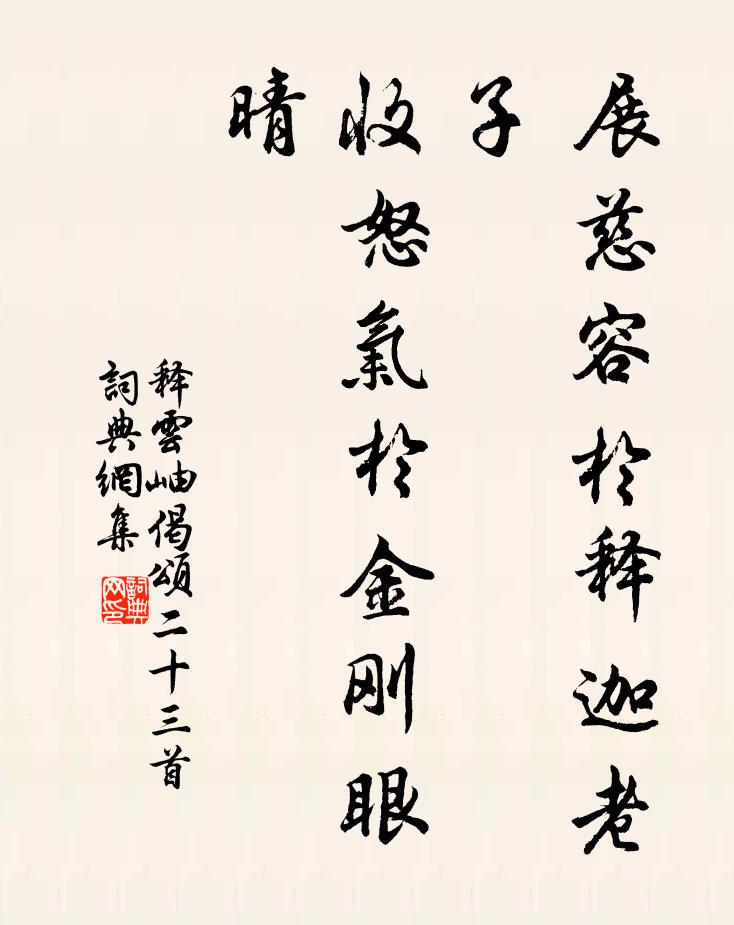 展慈容於释迦老
子
收怒氣於金刚眼
晴
释雲岫偈頌二十三首
詞典網集
詞典
网印